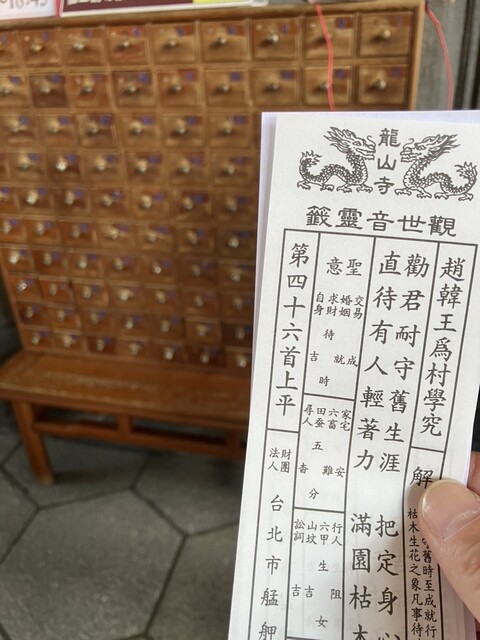 龍山寺
觀世音靈籤
趙韓王爲村學究
解
守舊時至成就行
枯木生花之象凡事待
勸君耐守舊生涯
把定身
直待有人輕著力
滿園枯木
聖意
交易 成
婚姻 就
求財 待時
自身 吉
家宅 安
六畜 難
田蚕 五分
尋人 杳
行人 阻
六甲 生女
山坟 吉
訟詞 吉
第四十六首上平
財團法人
台北市艋舺